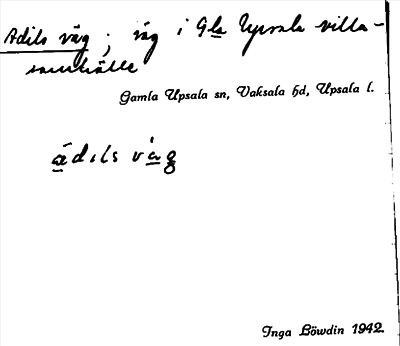 Adils väg ; väg i Gla Upsala villa-
samhälle
Gamla Upsala sn, Vaksala hd, Upsala l.
ádils vàg
Inga Löwdin 1942.